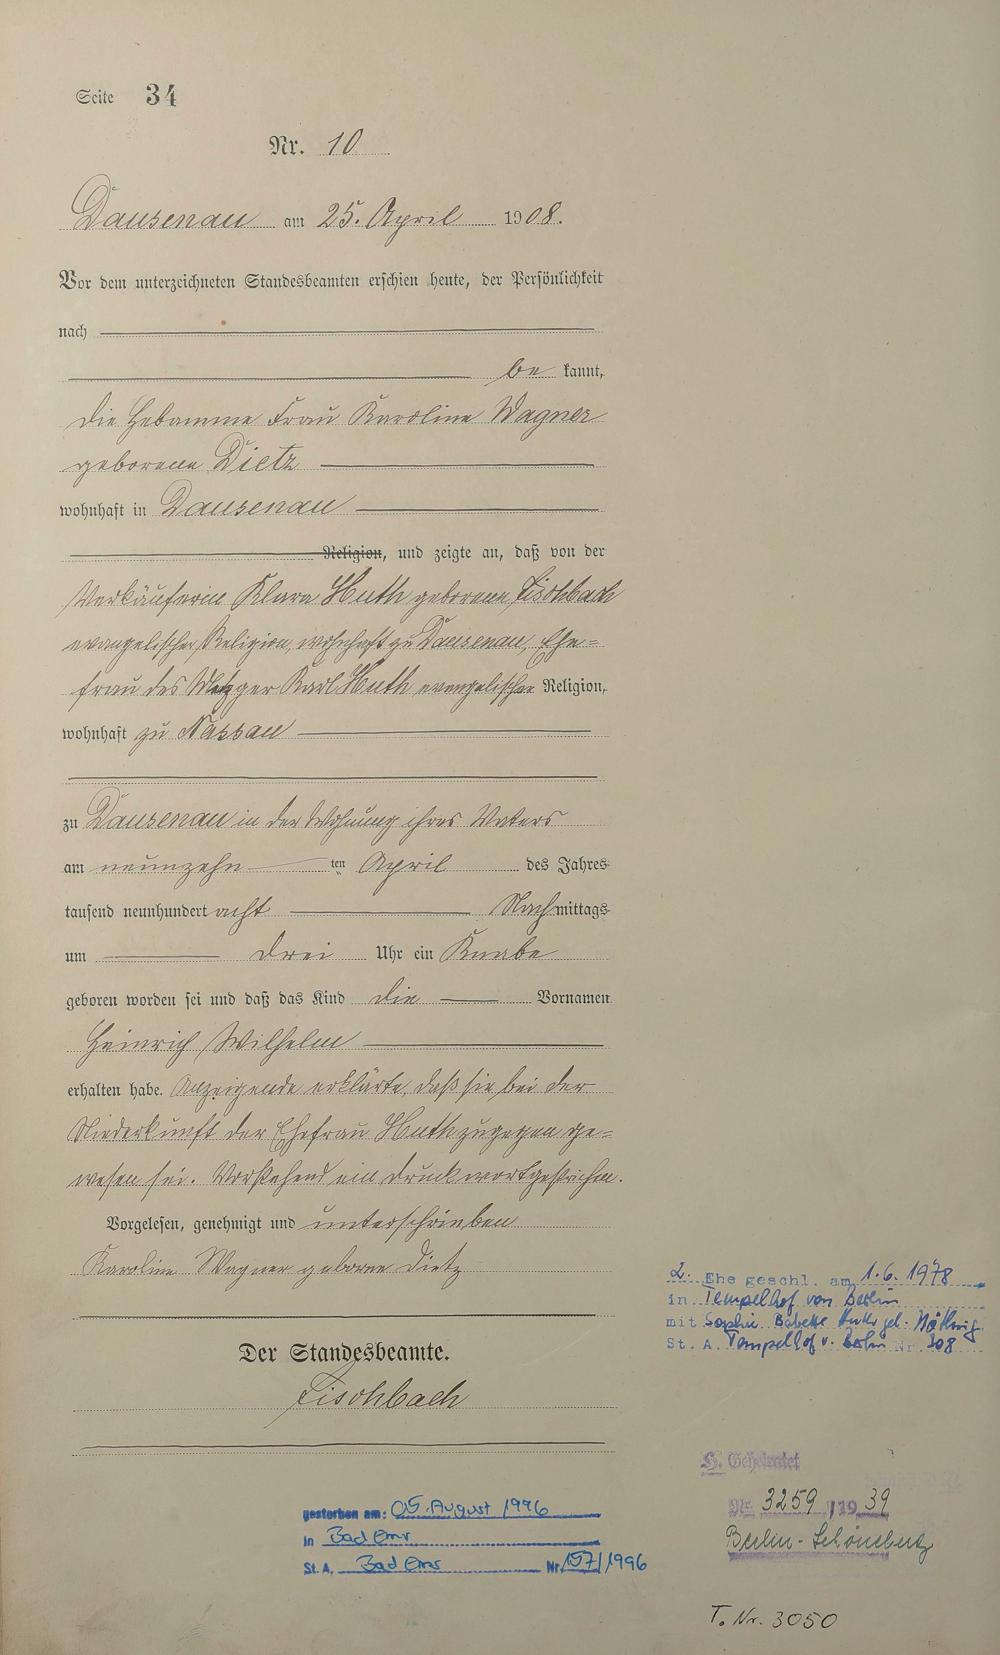 Seite 34
Nr. 10
Dausenau am 25. April 1908.
Vor dem unterzeichneten Standesbeamten erschien heute, der Persönlichkeit
nach
be kannt,
die Hebamme Frau Karoline Wagner
geborene Dietz
wohnhaft in Dausenau
Religion, und zeigte an, daß von der
Verkäuferin Klara Huth geborene Fischbach
evangelischer Religion, wohnhaft zu Dausenau, Ehe-
frau des Metzger Karl Huth evangelischer Religion,
wohnhaft zu Nassau
zu Dausenau in der Wohnung ihres Vaters
am neunzehn ten April des Jahres
tausend neunhundert acht Nachmittags
um drei Uhr ein Knabe
geboren worden sei und daß das Kind die Vornamen
Heinrich Wilhelm
erhalten habe. Anzeigende erklärte, daß sie bei der
Niederkunft der Ehefrau Huth zugegen ge-
wesen sei. Vorstehend ein Druckwort gestrichen.
Vorgelesen, genehmigt und unterschrieben
Karoline Wagner geborne Dietz
Der Standesbeamte.
Fischbach
2. Ehe geschl. am 1.6.1978
in Tempelhof von Berlin
mit Sophie Babette Huth gel.
St. A. Tempelhof v. Berlin Nr. 308
H. Geheiratet
Nr. 3259/1939
Berlin-Schöneberg
gestorben am: 05. August 1996
in Bad Ems
St. A. Bad Ems Nr. 157/1996
T. Nr. 3050